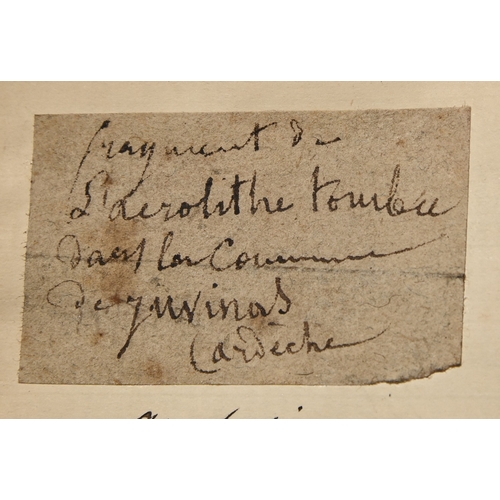 fragment de
L'aerolithe tombée
dans la Commune
de juvinas
(ardèche